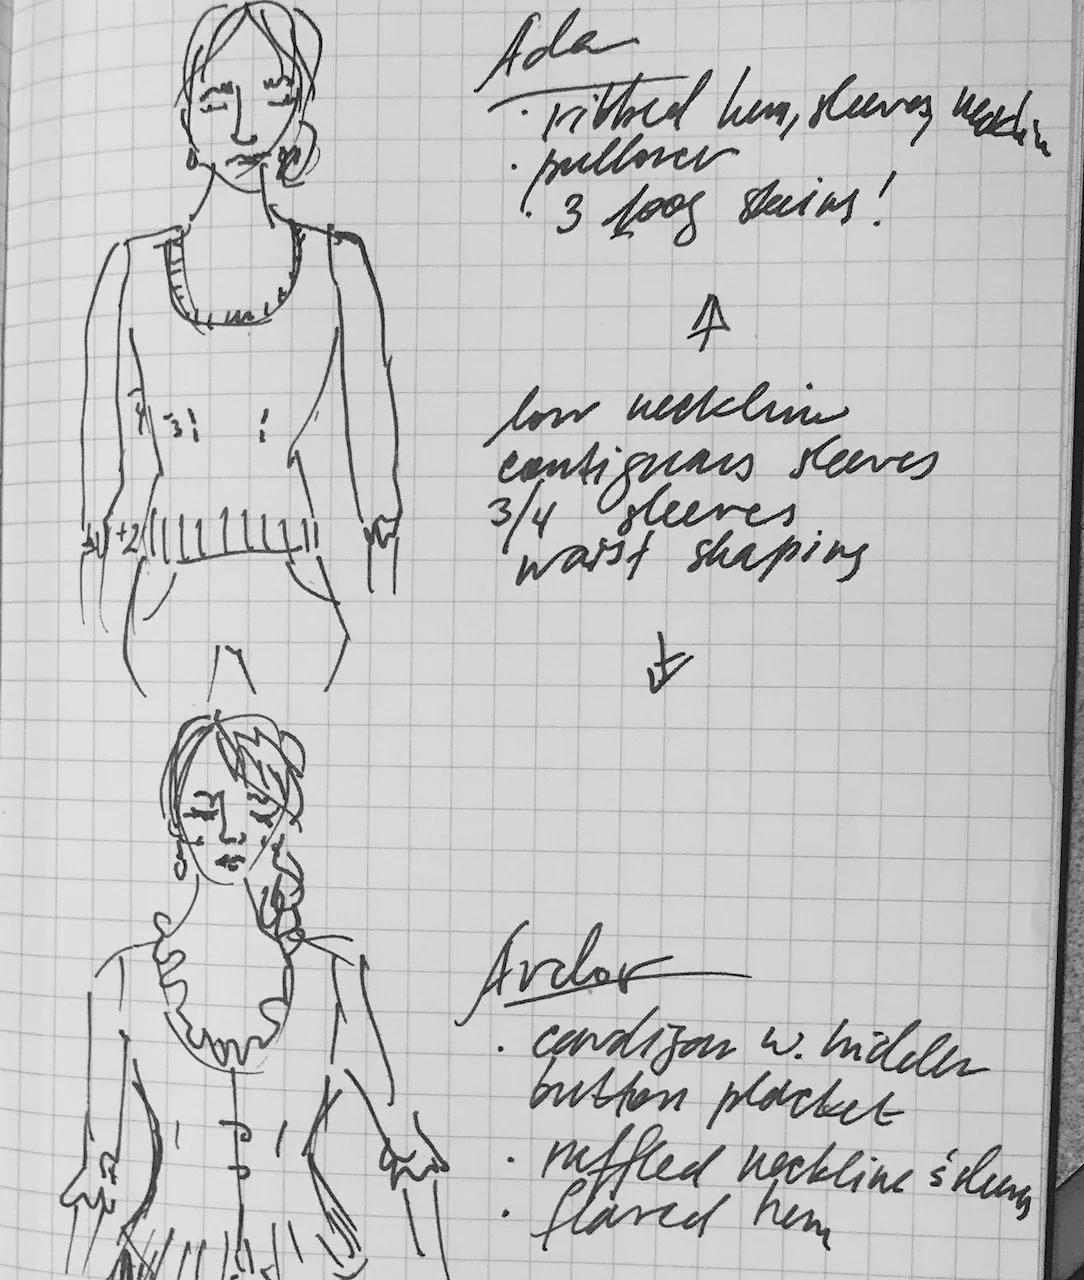 Ada
· ribbed hem, sleeves, neckline
· pullover
· 3 100g skeins!
low neckline
contiguous sleeves
3/4 sleeves
waist shaping
-4 -3
+2
Ardor
· cardigan w. hidden
button placket
· ruffled neckline & sleeves
· flared hem